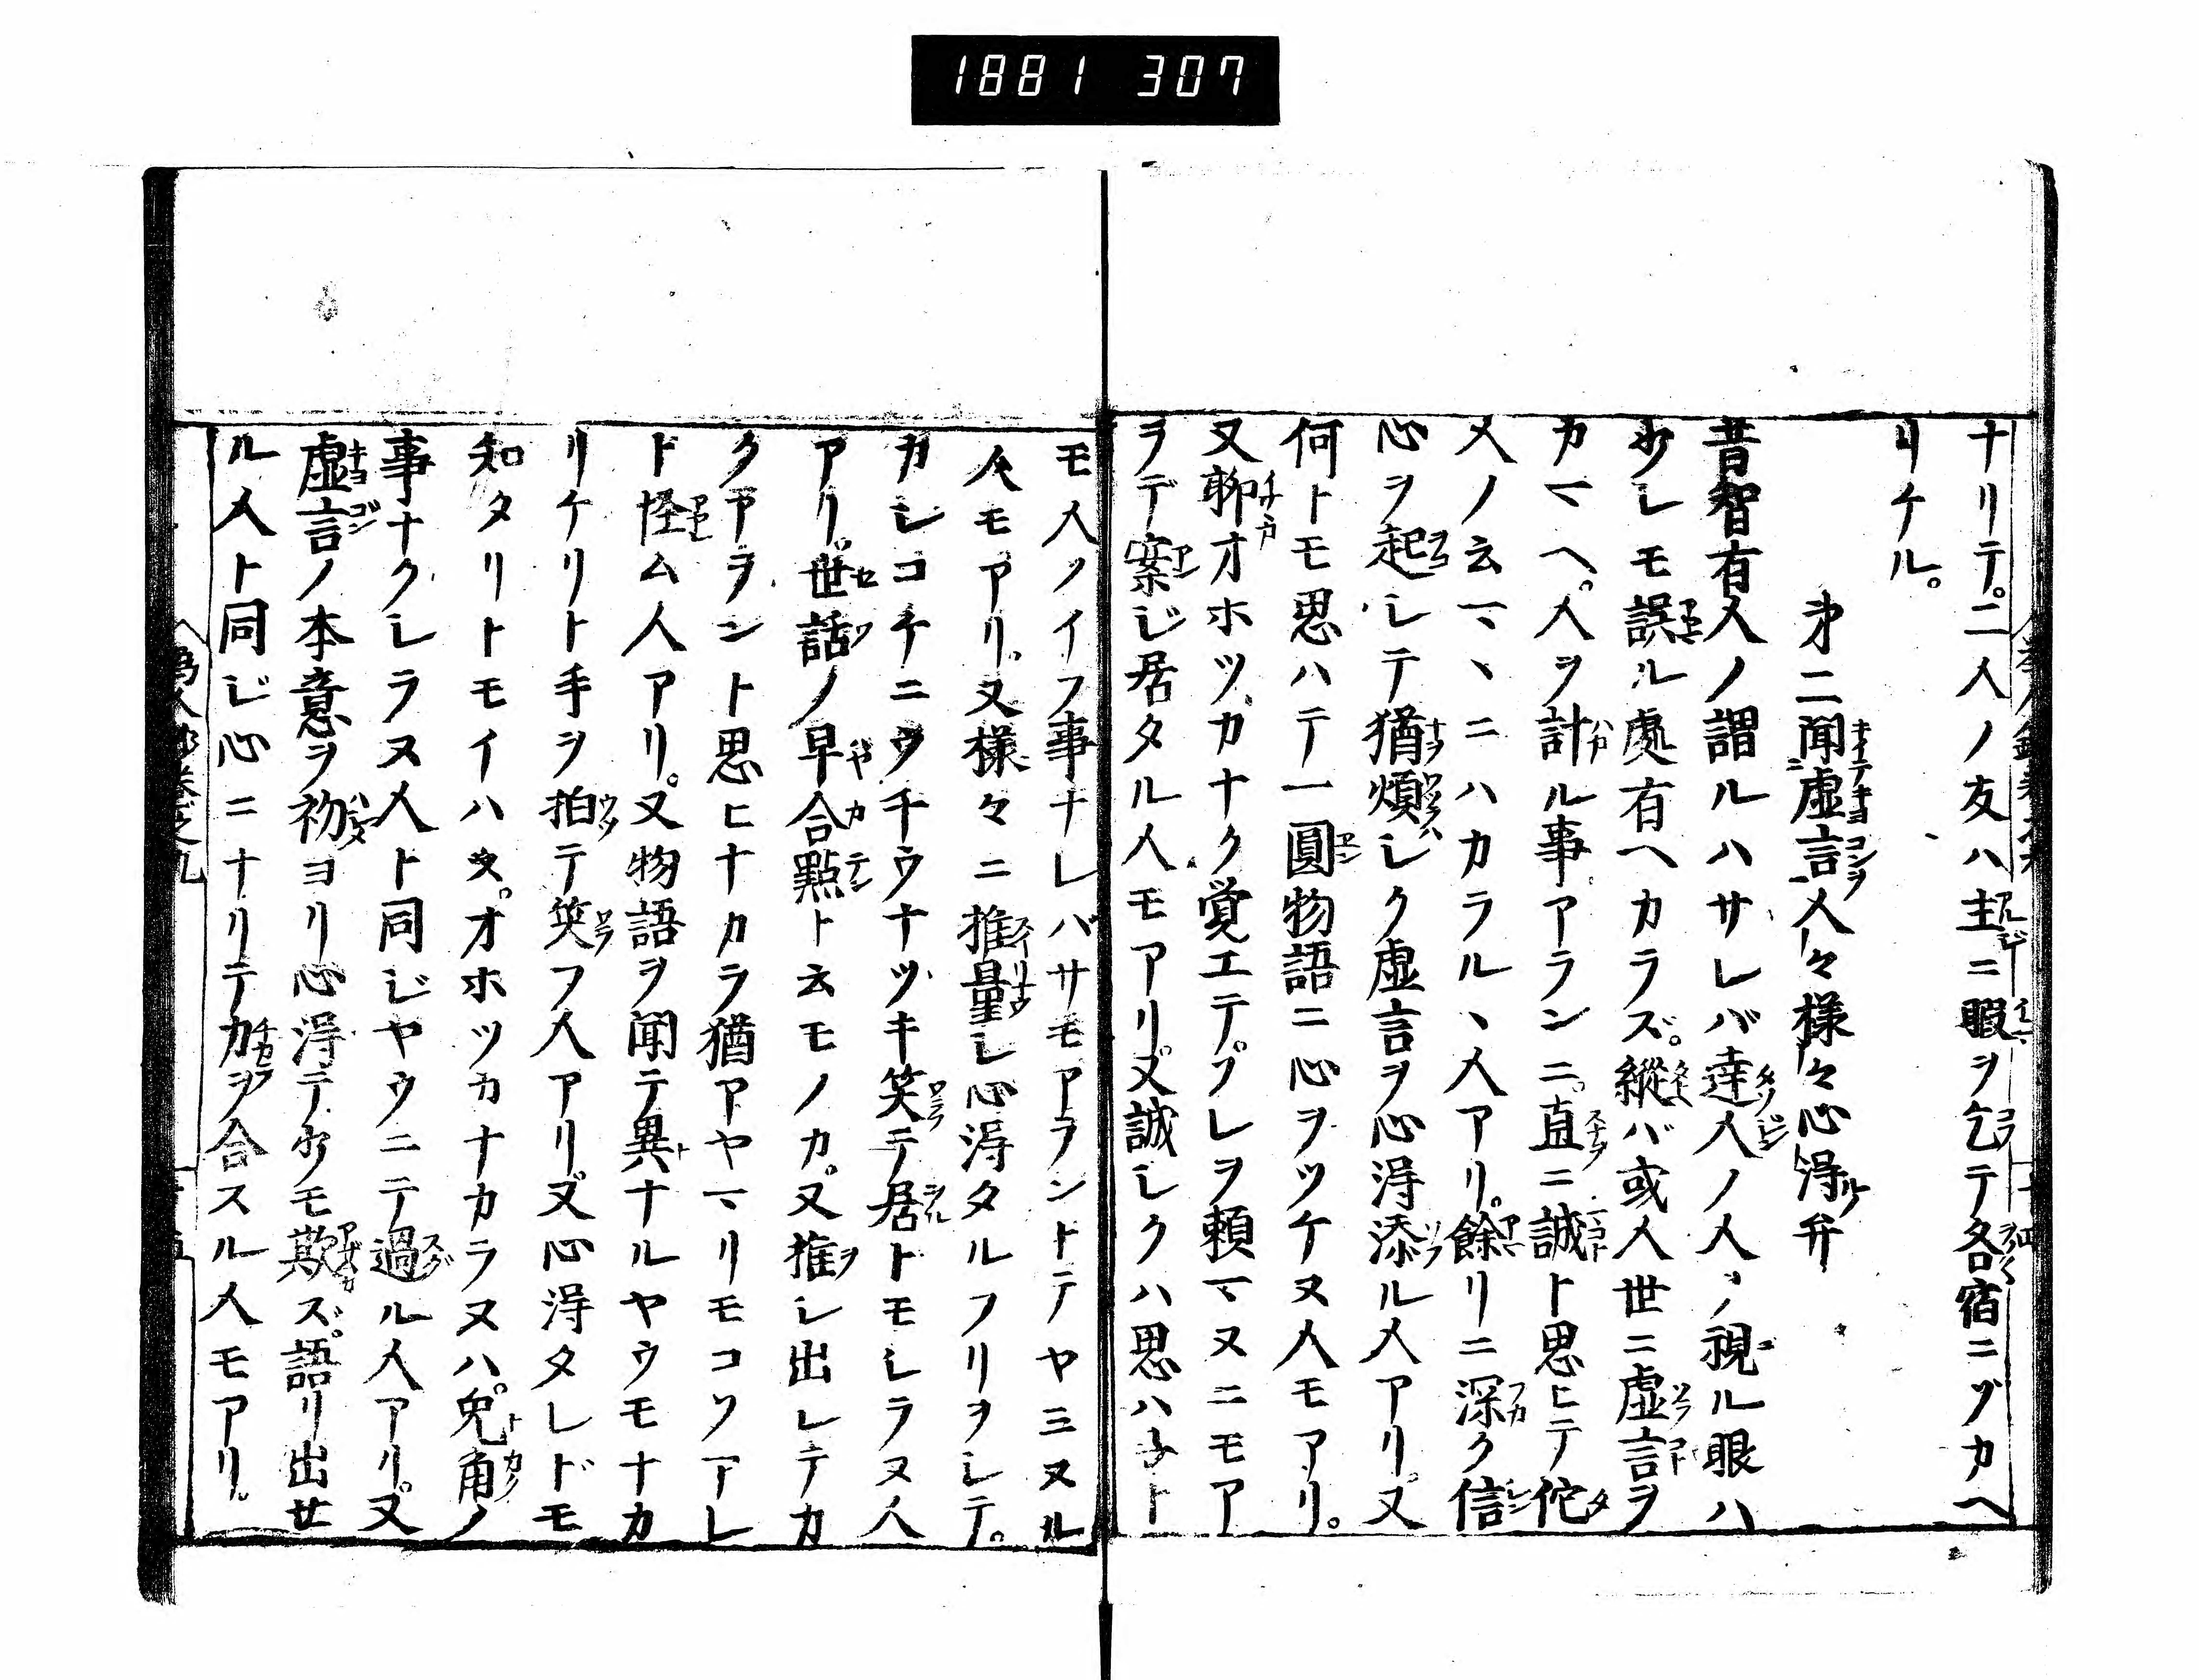 1881 307
ナリテ。二人ノ友ハ主ニ暇ヲ乞テ各宿ニゾカヘ
リケル。
第二聞虚言人々様々心得弁
昔智有人ノ謂ルハサレバ達人ノ人ヲ視ル眼ハ
少シモ誤ル處有ヘカラズ。縱バ或人世ニ虚言ヲ
カマヘ。人ヲ計ル事アランニ。直ニ誠ト思ヒテ佗
人ノ云マヽニハカラルヽ人アリ。餘リニ深ク信
心ヲ起シテ猶煩シク虚言ヲ心得添ル人アリ。又
何トモ思ハテ一圓物語ニ心ヲツケヌ人モアリ。
又聊オホツカナク覚エテ。ソレヲ頼マヌニモア
ラデ案ジ居タル人モアリ。又誠シクハ思ハ子ト
モ人ノイフ事ナレバサモアラントテヤミヌル
人モアリ。又様々ニ推量シ心得タルフリヲシテ。
カシコチニウチウナツキ笑テ居トモシラヌ人
アリ。世話ノ早合點ト云モノカ。又推シ出シテカ
クアラント思ヒナカラ猶アヤマリモコソアレ
ド怪ム人アリ。又物語ヲ聞テ異ナルヤウモナカ
リケリト手ヲ拍テ笑フ人アリ。又心得タレドモ
知タリトモイハズ。オホツカナカラヌハ。兎角ノ
事ナクシラヌ人ト同ジヤウニテ過ル人アリ。又
虚言ノ本意ヲ初ヨリ心得テ少モ欺ズ。語リ出セ
ル人ト同ジ心ニナリテ力ヲ合スル人モアリ。